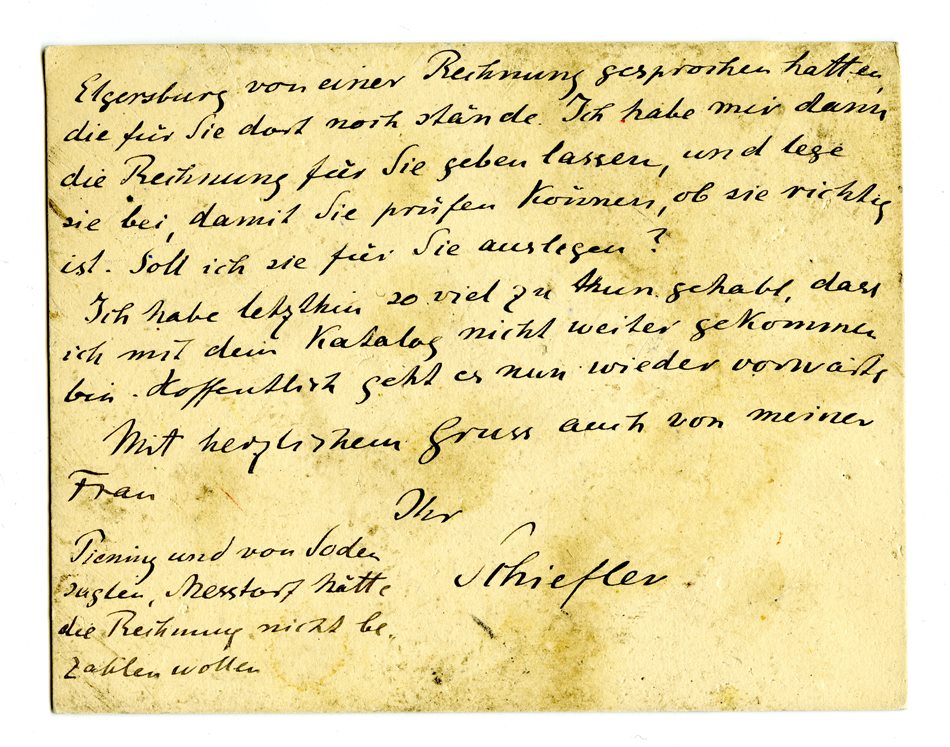 Elgersburg von einer Rechnung gesprochen hatten,
die für Sie dort noch stände. Ich habe mir dann
die Rechnung für Sie geben lassen, und lege
sie bei, damit Sie prüfen können, ob sie richtig
ist. Soll ich sie für Sie auslegen?
Ich habe letzthin so viel zu thun gehabt, dass
ich mit dem Katalog nicht weiter gekommen
bin. Hoffentlich geht es nun wieder vorwärts
Mit herzlichem Gruss auch von meiner
Frau
Ihr
Schiefler
und von Soden
sagten, Messtorf hätte
die Rechnung nicht be-
zahlen wollen